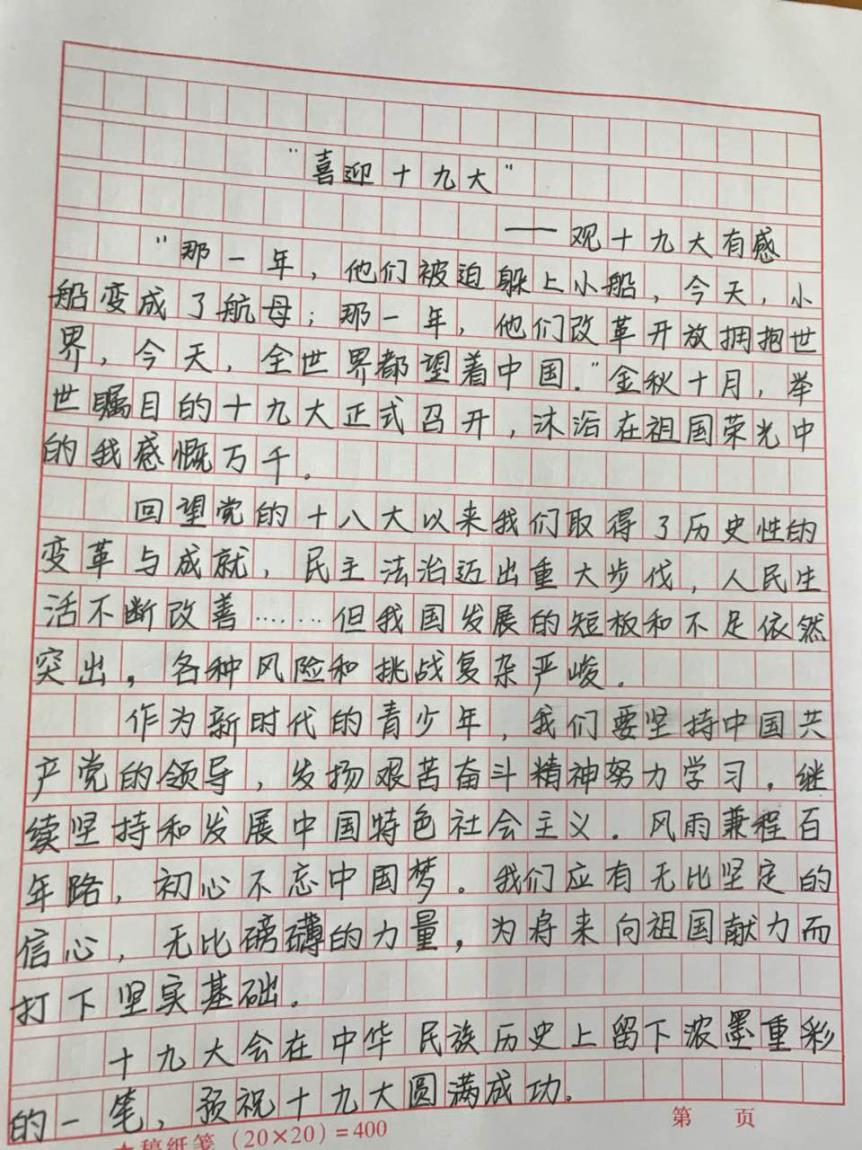 “喜迎十九大”
——观十九大有感
“那一年，他们被迫躲上小船，今天，小
船变成了航母；那一年，他们改革开放拥抱世
界，今天，全世界都望着中国。”金秋十月，举
世瞩目的十九大正式召开，沐浴在祖国荣光中
的我感慨万千。
回望党的十八大以来我们取得了历史性的
变革与成就，民主法治迈出重大步伐，人民生
活不断改善……但我国发展的短板和不足依然
突出，各种风险和挑战复杂严峻。
作为新时代的青少年，我们要坚持中国共
产党的领导，发扬艰苦奋斗精神努力学习，继
续坚持和发展中国特色社会主义。风雨兼程百
年路，初心不忘中国梦。我们应有无比坚定的
信心，无比磅礴的力量，为将来向祖国献力而
打下坚实基础。
十九大会在中华民族历史上留下浓墨重彩
的一笔，预祝十九大圆满成功。
★稿纸笺（20×20）=400
第 页